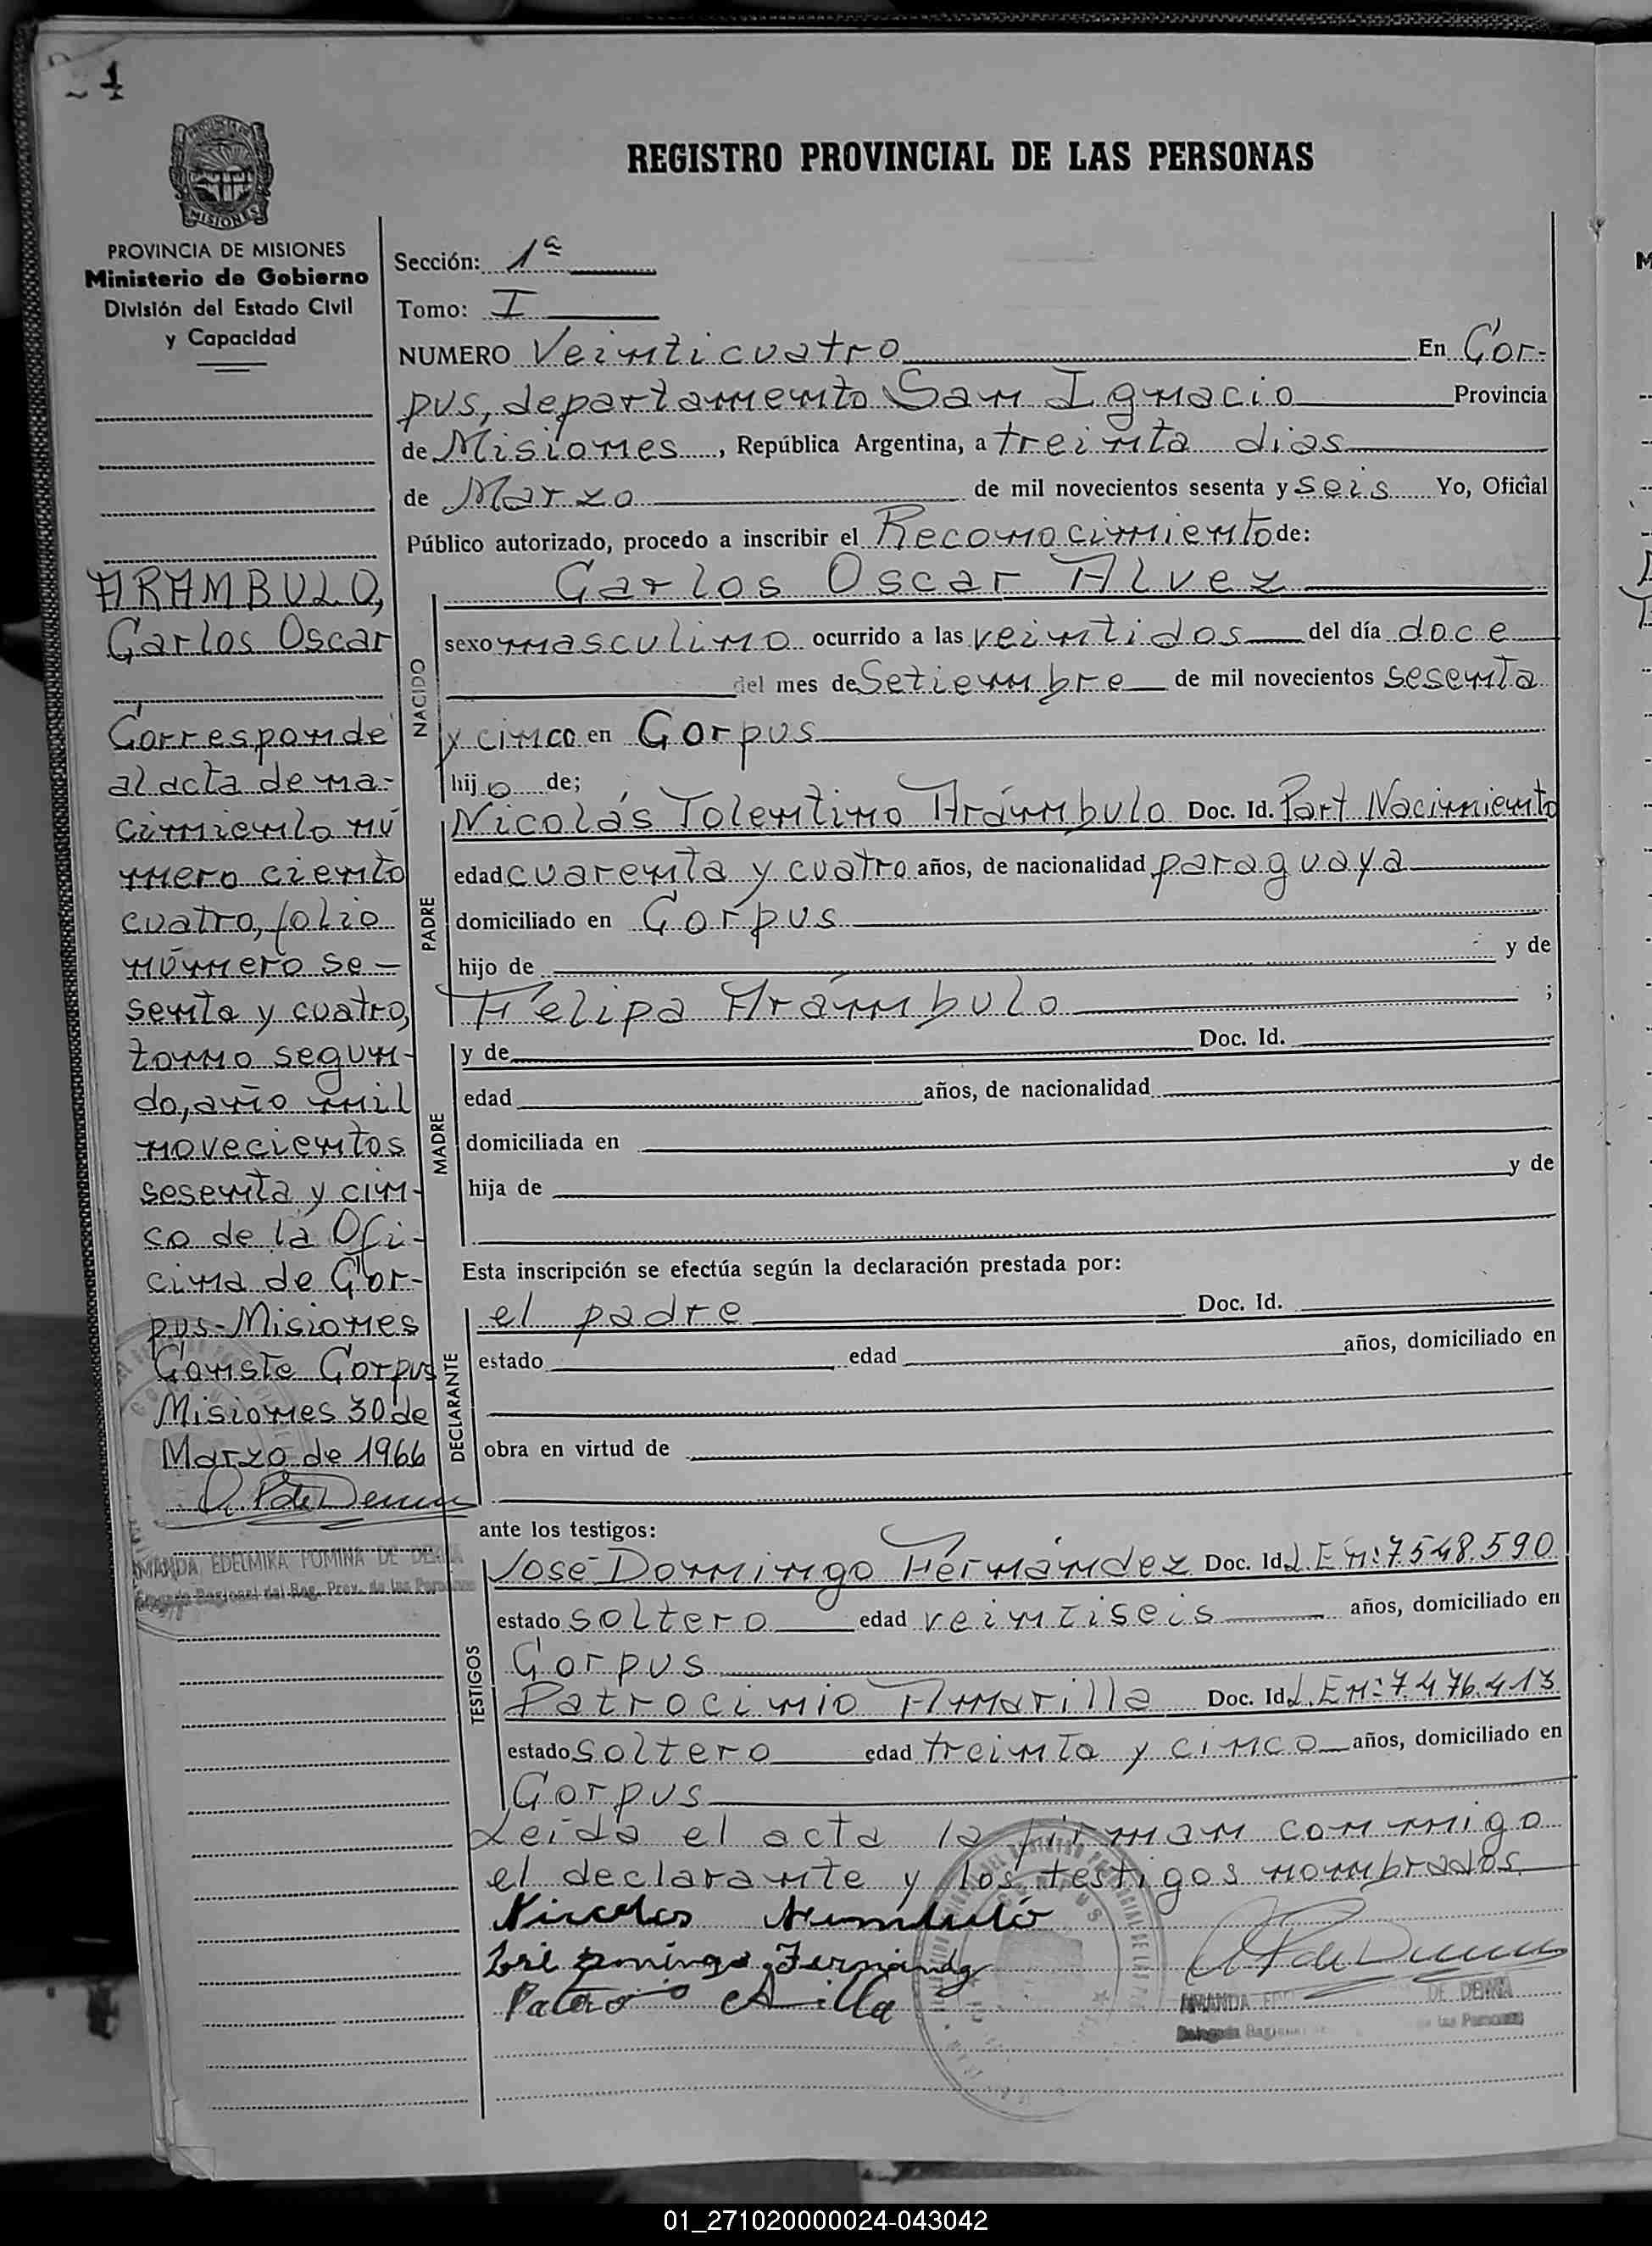 24
REGISTRO PROVINCIAL DE LAS PERSONAS
MISIONES
PROVINCIA DE MISIONES
Ministerio de Gobierno
División del Estado Civil
y Capacidad
ARAMBULO,
Carlos Oscar
Corresponde
al acta de na-
cimiento nú
mero ciento
cuatro, folio
número se-
senta y cuatro,
tomo segun-
do, año mil
novecientos
sesenta y cin-
co de la Ofi-
cina de Cor-
pus-Misiones
Conste Corpus
Misiones 30 de
Marzo de 1966
AMANDA EDELMIRA POMINA DE DENNA
Delegada Regional del Reg. Prov. de las Personas
Sección: 1ª
Tomo: I
NUMERO Veinticuatro En Cor-
pus, departamento San Ignacio Provincia
de Misiones, República Argentina, a treinta dias
de Marzo de mil novecientos sesenta y seis Yo, Oficial
Público autorizado, procedo a inscribir el Reconocimiento de:
Carlos Oscar Alvez
NACIDO
sexo masculino ocurrido a las veintidos del día doce
del mes de Setiembre de mil novecientos sesenta
y cinco en Corpus
hijo de;
PADRE
Nicolás Tolentino Arámbulo Doc. Id. Part Nacimiento
edad cuarenta y cuatro años, de nacionalidad paraguaya
domiciliado en Corpus
hijo de y de
Felipa Arámbulo ;
MADRE
y de Doc. Id.
edad años, de nacionalidad
domiciliada en
hija de y de
Esta inscripción se efectúa según la declaración prestada por:
DECLARANTE
el padre Doc. Id.
estado edad años, domiciliado en
obra en virtud de
ante los testigos:
TESTIGOS
José Domingo Fernández Doc. Id. L.E n: 7.548.590
estado soltero edad veintiseis años, domiciliado en
Corpus
Patrocinio Amarilla Doc. Id. L.E n: 7.476.413
estado soltero edad treinta y cinco años, domiciliado en
Corpus
Leída el acta la firman conmigo
el declarante y los testigos nombrados.
Nicolas Arambulo
José Domingo Fernández
AMANDA DE DENNA
Delegada Regional de las Personas
01_271020000024-043042